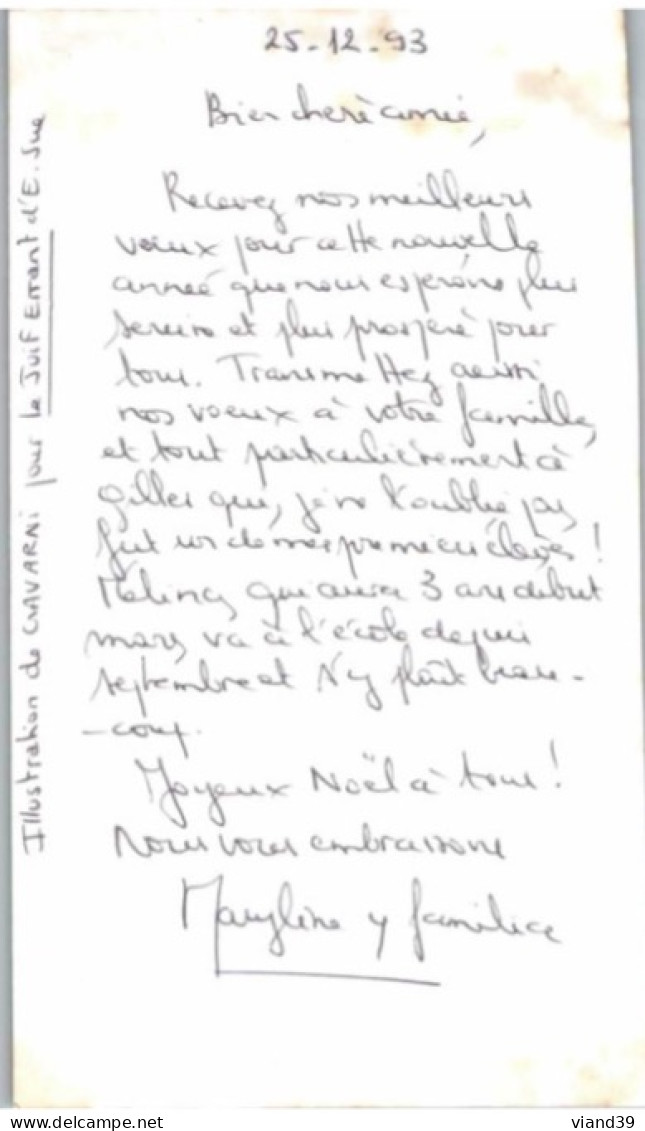 25-12-93
Bien chère amie,
Recevez nos meilleurs
voeux pour cette nouvelle
année que nous espérons plus
sereine et plus prospère pour
tous. Transmettez aussi
nos voeux à votre famille,
et tout particulièrement à
Gilles qui, je ne l'oublie pas,
fut un de mes premiers élèves !
qui aura 3 ans début
mars, va à l'école depuis
septembre et s'y plaît beau-
-coup.
Joyeux Noël à tous !
Nous vous embrassons
Maryline y familia
Illustration de GAVARNI pour le Juif Errant d'E. Sue
viand39